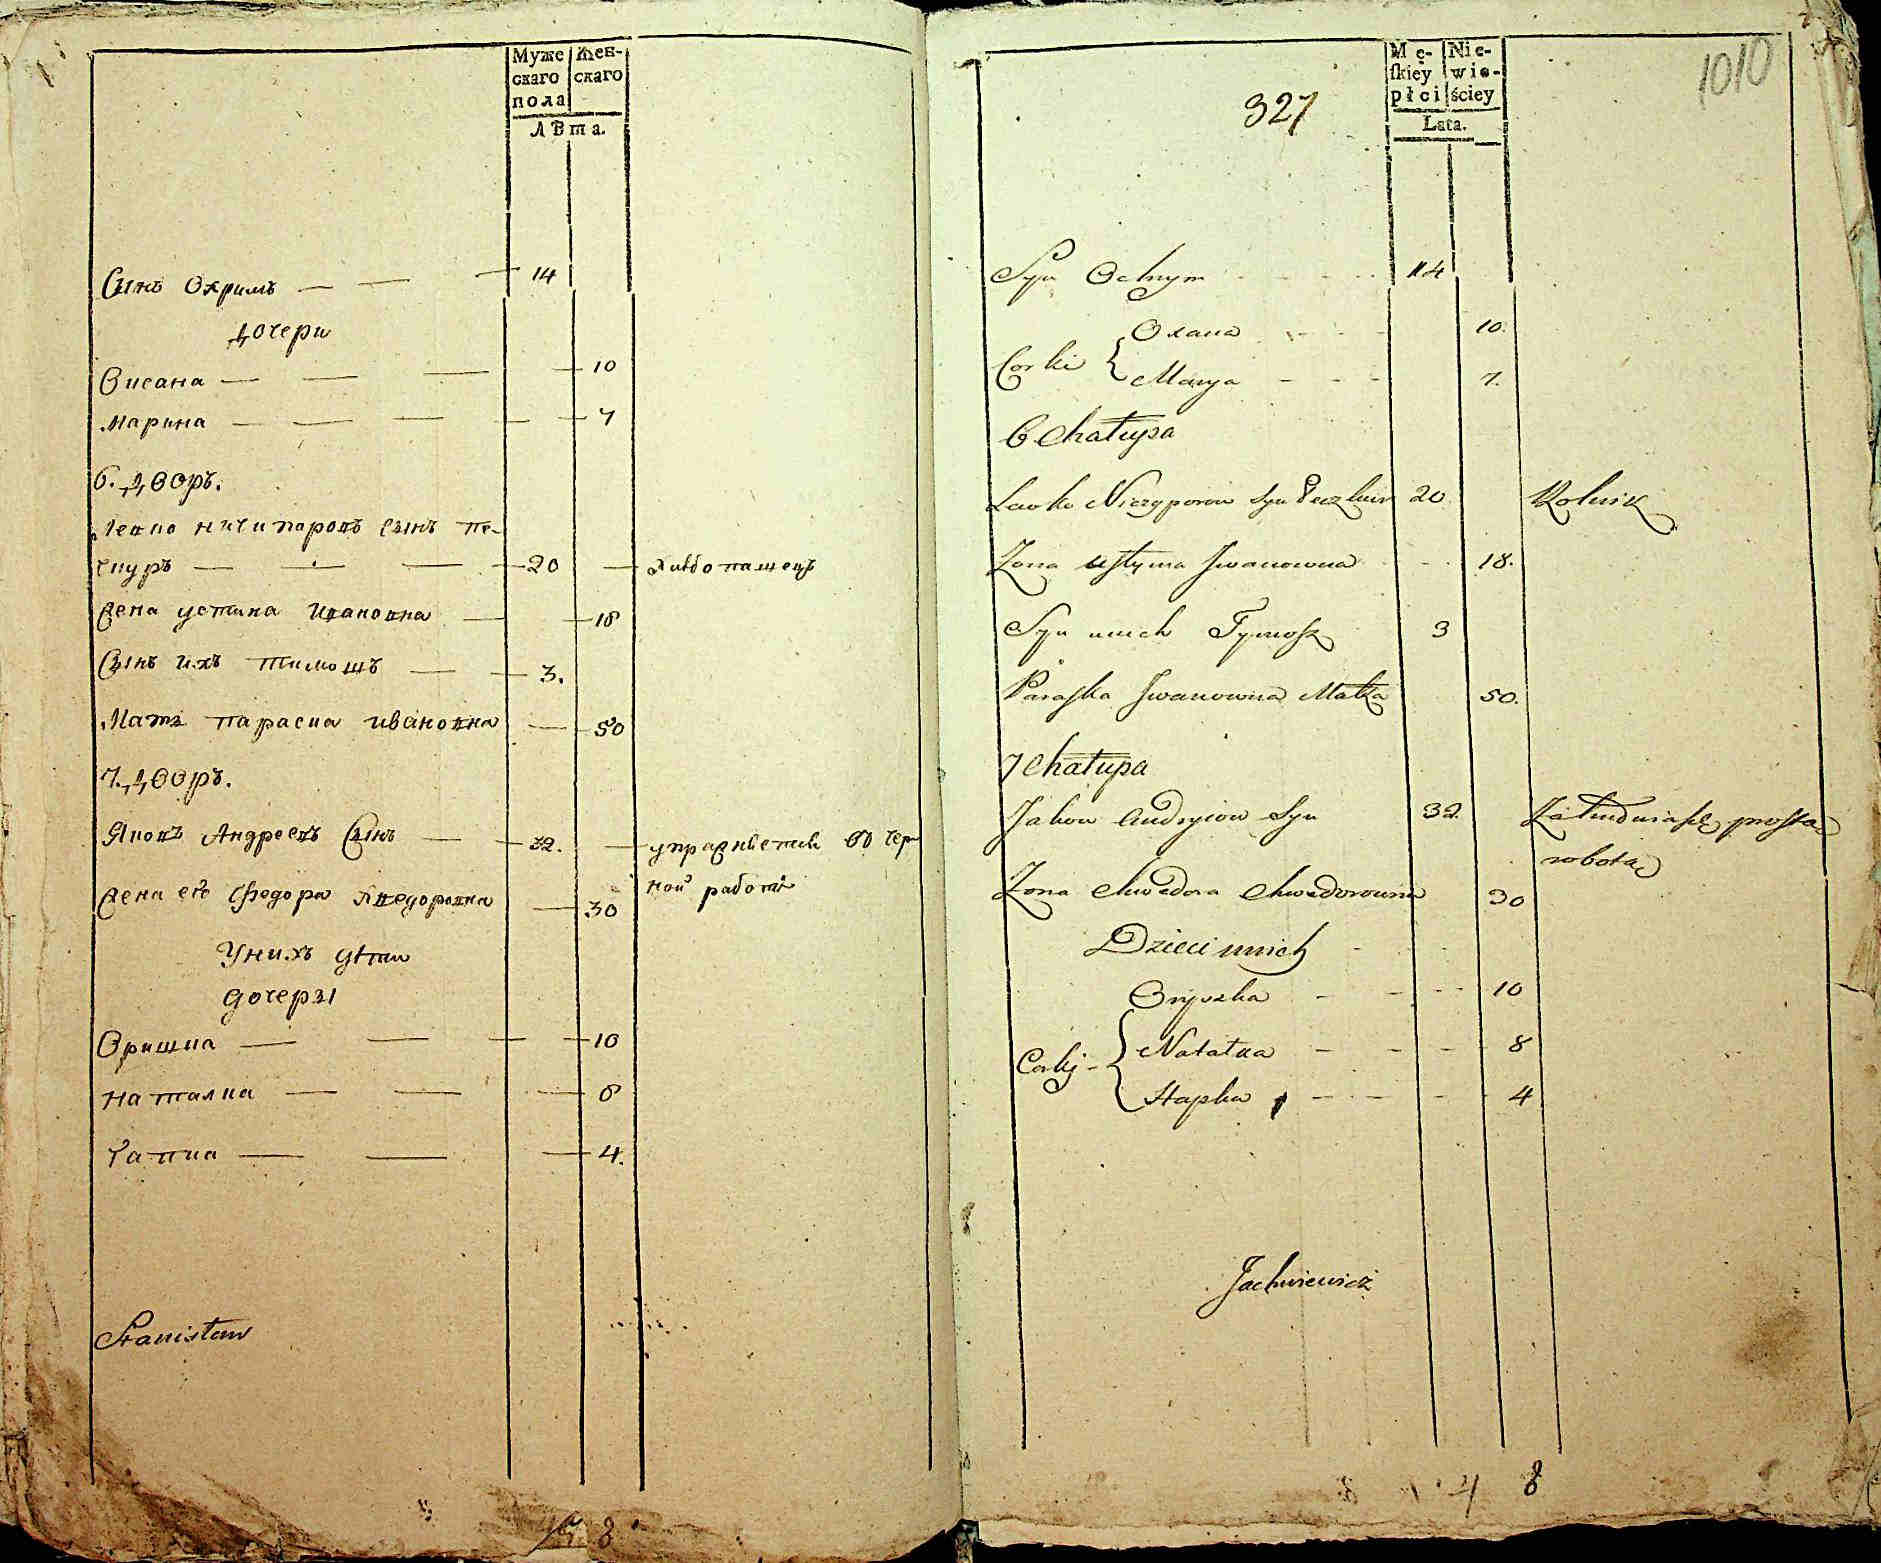 Муже
скаго
пола
Жен-
скаго
лѣта.
Сынъ Охримъ — — — 14
дочери
Оксана — — — — 10
Марина — — — — 7
6. дворъ.
Левко Ничипоровъ сынъ Пе-
чкуръ — — — 20 — хлѣбопашецъ
Жена Устина Ивановна — — 18
Сынъ ихъ Тимошъ — — 3.
Мать Параска Ивановна — — 50
7. дворъ.
Яковъ Андреевъ Сынъ — — 32. — упражняется въ чер
ной работѣ
Жена его Федора Хведоровна — 30
У нихъ дѣти
дочеры
Оришка — — — — 10
Наталка — — — — 8
Гапка — — — 4.
Stanisław
1010
327
Mę-
ſkiey
płci
Nie-
wie-
ściey
Lata.
Syn Ochrym 14
Oxana 10.
Corki
Marya 7.
6 Chałupa
Lewko Niczyporow Syn Peczkur 20 Rolnik
Zona Ustyma Jwanowna 18.
Syn unich Tymosz 3
Paraſka Jwanowna Matka 50.
7 Chałupa
Jakow Andryiow Syn 32. Zatrudnia ſię proſtą
robotą
Zona Chwedora Chwedorowna 30
Dzieci unich
Oryszka 10
Corki
Natałka 8
Hapka 4
Jachniewicz
8
4 8